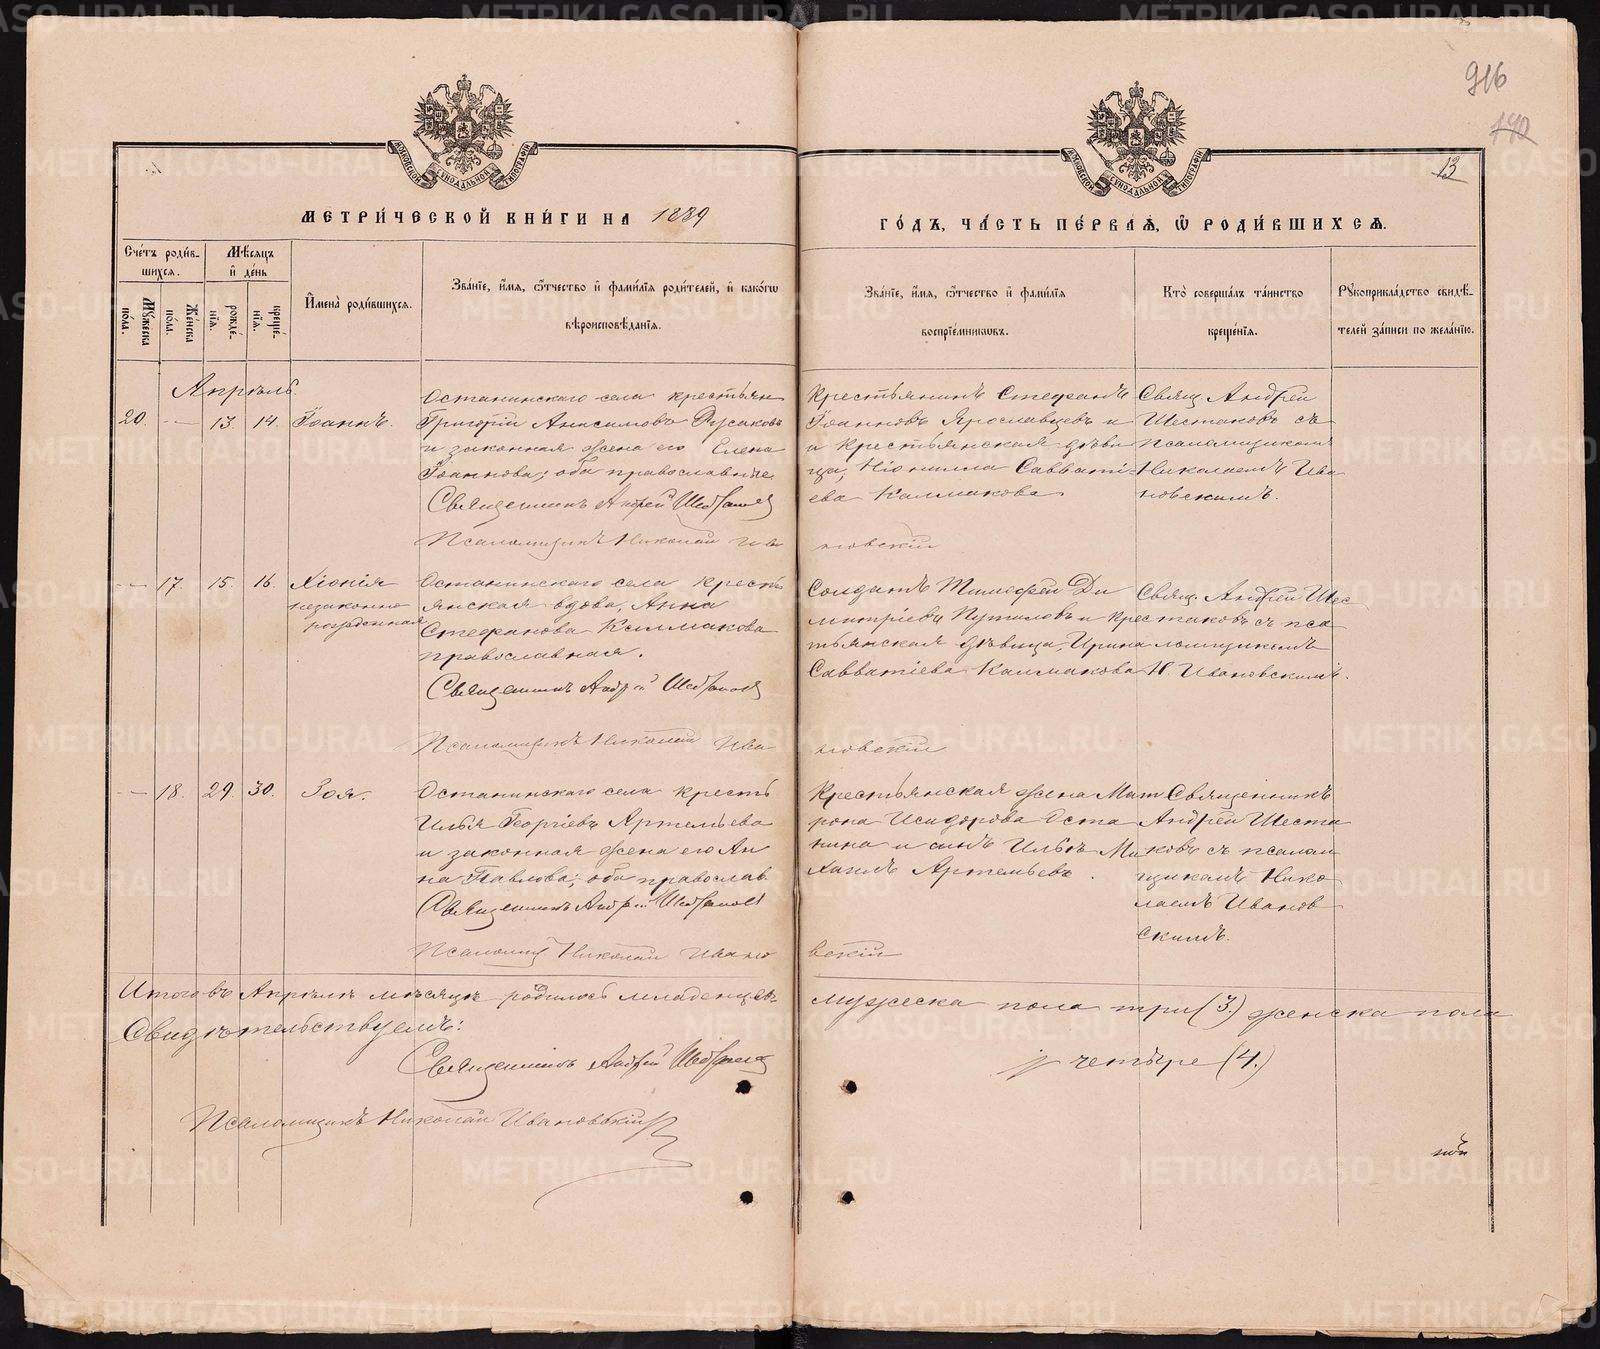 METRIKI.GASO-URAL.RU
916
140
13
МОСКОВСКОЙ СУНОДАЛЬНОЙ ТИПОГРАФІИ
МЕТРИ́ЧЕСКОЙ КНИ́ГИ НА 1889
ГО́ДЪ, ЧА́СТЬ ПЕ́РВАЯ, Ѡ РОДИ́ВШИХСЯ.
Сче́тъ роди́в-
шихся.
Мѣ́сяцъ
и҆ де́нь
Му́жеска
по́ла.
Же́нска
по́ла.
рожде́-
нїя.
креще́-
нїя.
И҆мена̀ роди́вшихся.
Зва́нїе, и҆́мя, ѻ҆́тчество и҆ фами́лїя роди́телей, и҆ како́гѡ
вѣроисповѣ́данїя.
Зва́нїе, и҆́мя, ѻ҆́тчество и҆ фами́лїя
воспрїе́мникѡвъ.
Кто̀ соверша́лъ та́инство
креще́нїя.
Рꙋкоприкла́дство свидѣ́-
телей за́писи по жела́нїю.
Апрѣль.
20. — 13. 14. Іоаннъ.
Останинскаго села крестьян
Григорій Анисимовъ Русаковъ
и законная жена его Елена
Іоаннова; оба православные
Священникъ Андрей Шестаковъ
Псаломщикъ Николай Ива
новскій
Крестьянинъ Стефанъ
Іоанновъ Ярославцевъ и
и крестьянская дѣви
ца, Ніонилла Савваті-
ева Калмакова
Свящ. Андрей
Шестаковъ съ
псаломщикомъ
Николаемъ Ива
новскимъ.
— 17. 15. 16. Хіонія
незаконно
рожденная
Останинскаго села кресть
янская вдова, Анна
Стефанова Калмакова
православная.
Священникъ Андрей Шестаковъ
Псаломщикъ Николай Ива
новскій
Солдатъ Тимофей Ди
митріевъ Путиловъ и крес
тьянская дѣвица, Ирина
Савватіева Калмакова
Свящ. Андрей Шес
таковъ съ пса
ломщикомъ
Н. Ивановскимъ.
— 18. 29. 30. Зоя.
Останинскаго села кресть
Илья Георгіевъ Артемьева
и законная жена его Ан
на Павлова; оба православ.
Священникъ Андрей Шестаковъ
Псаломщ Николай Ивано
вскій
Крестьянская жена Мат
рона Исидорова Оста
нина и сынъ Ильи Ми
хаилъ Артемьевъ.
Священникъ
Андрей Шеста
ковъ съ псалом
щикомъ Нико
лаемъ Иванов
скимъ.
Итого въ Апрѣлѣ мѣсяцѣ родилось младенцевъ
мужеска пола три (3.) женска пола
четыре (4.)
Свидѣтельствуемъ:
Священникъ Андрей Шестаковъ
Псаломщикъ Николай Ивановскій